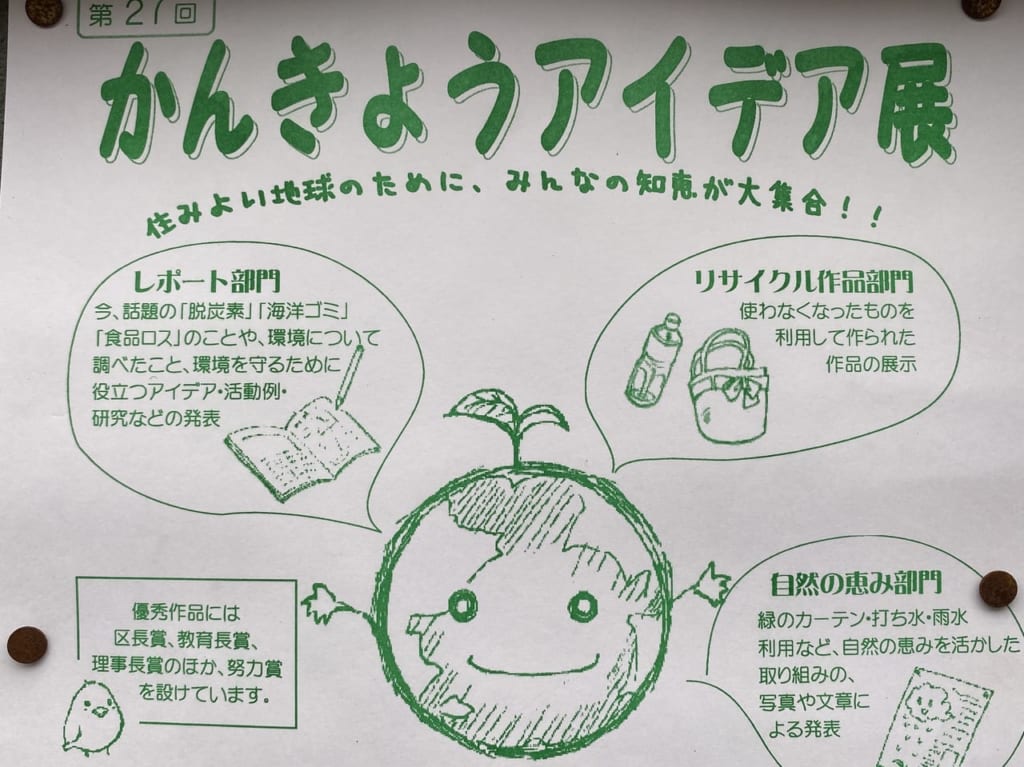 第27回
かんきょうアイデア展
住みよい地球のために、みんなの知恵が大集合!!
レポート部門
今、話題の「脱炭素」「海洋ゴミ」
「食品ロス」のことや、環境について
調べたこと、環境を守るために
役立つアイデア・活動例・
研究などの発表
リサイクル作品部門
使わなくなったものを
利用して作られた
作品の展示
優秀作品には
区長賞、教育長賞、
理事長賞のほか、努力賞
を設けています。
自然の恵み部門
緑のカーテン・打ち水・雨水
利用など、自然の恵みを活かした
取り組みの、
写真や文章に
よる発表